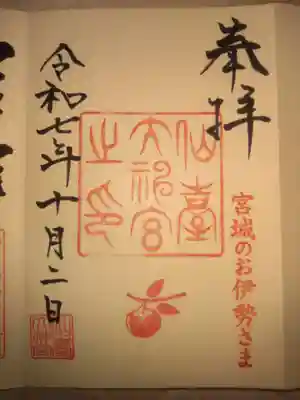 奉拝
宮城のお伊勢さま
仙臺
大神宮
之印
令和七年十月二日